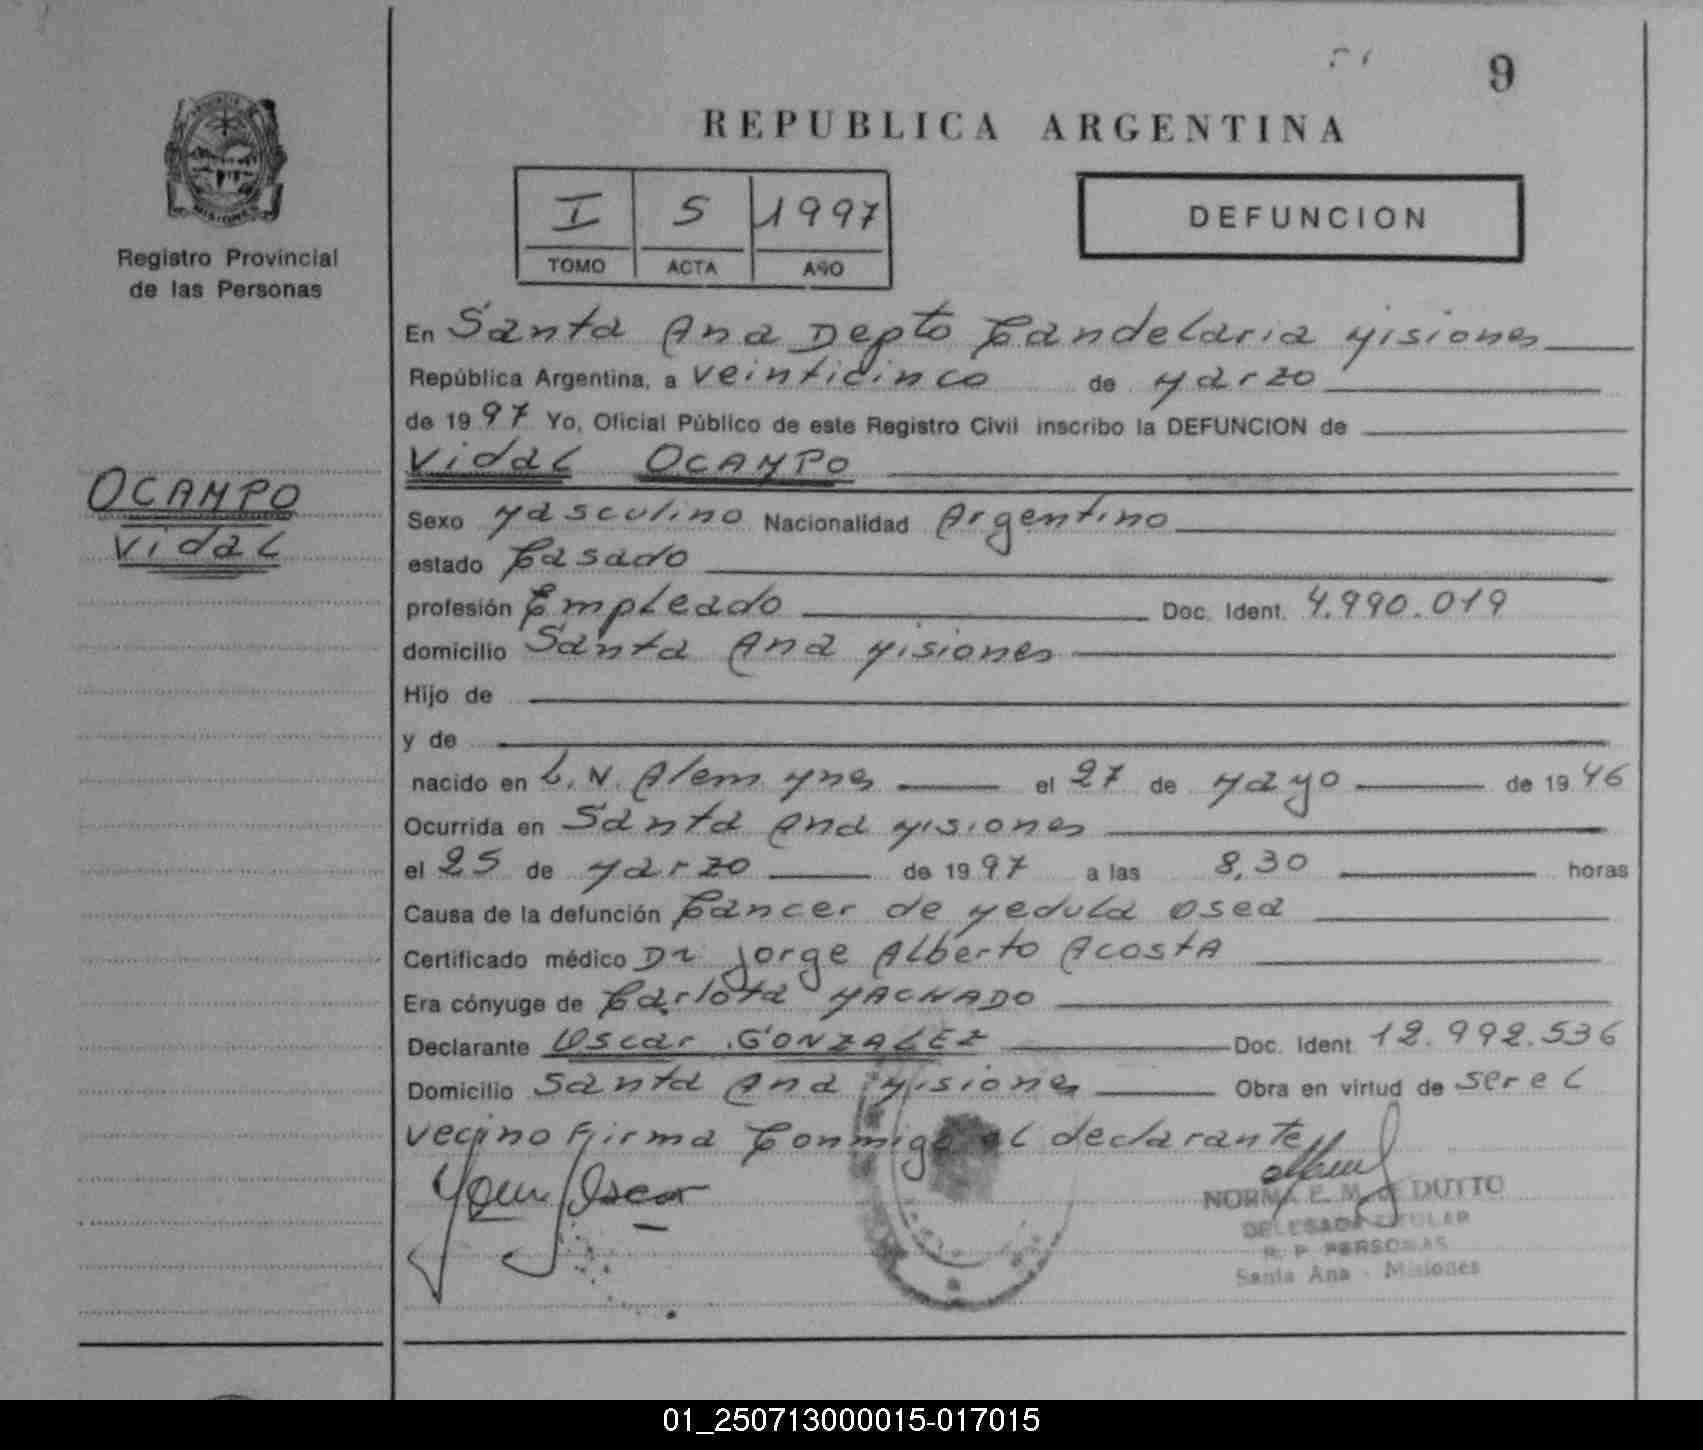 9
REPUBLICA ARGENTINA
I S 1997
TOMO ACTA AÑO
DEFUNCION
Registro Provincial
de las Personas
En Santa Ana Depto Candelaria Misiones
República Argentina, a veinticinco de Marzo
de 1997 Yo, Oficial Público de este Registro Civil inscribo la DEFUNCION de
Vidal OCAMPO
OCAMPO
Vidal
Sexo Masculino Nacionalidad Argentino
estado Casado
profesión Empleado Doc. Ident. 4.990.019
domicilio Santa Ana Misiones
Hijo de
y de
nacido en L.N. Alem Mnes el 27 de Mayo de 1946
Ocurrida en Santa Ana Misiones
el 25 de Marzo de 1997 a las 8,30 horas
Causa de la defunción Cancer de Medula Osea
Certificado médico Dr Jorge Alberto Acosta
Era cónyuge de Carlota MACHADO
Declarante Oscar GONZALEZ Doc. Ident. 12.992.536
Domicilio Santa Ana Misiones Obra en virtud de ser el
vecino Firma Conmigo el declarante
Oscar
NORMA E. M. de DUTTO
DELEGADA TITULAR
R. P. PERSONAS
Santa Ana - Misiones
01_250713000015-017015